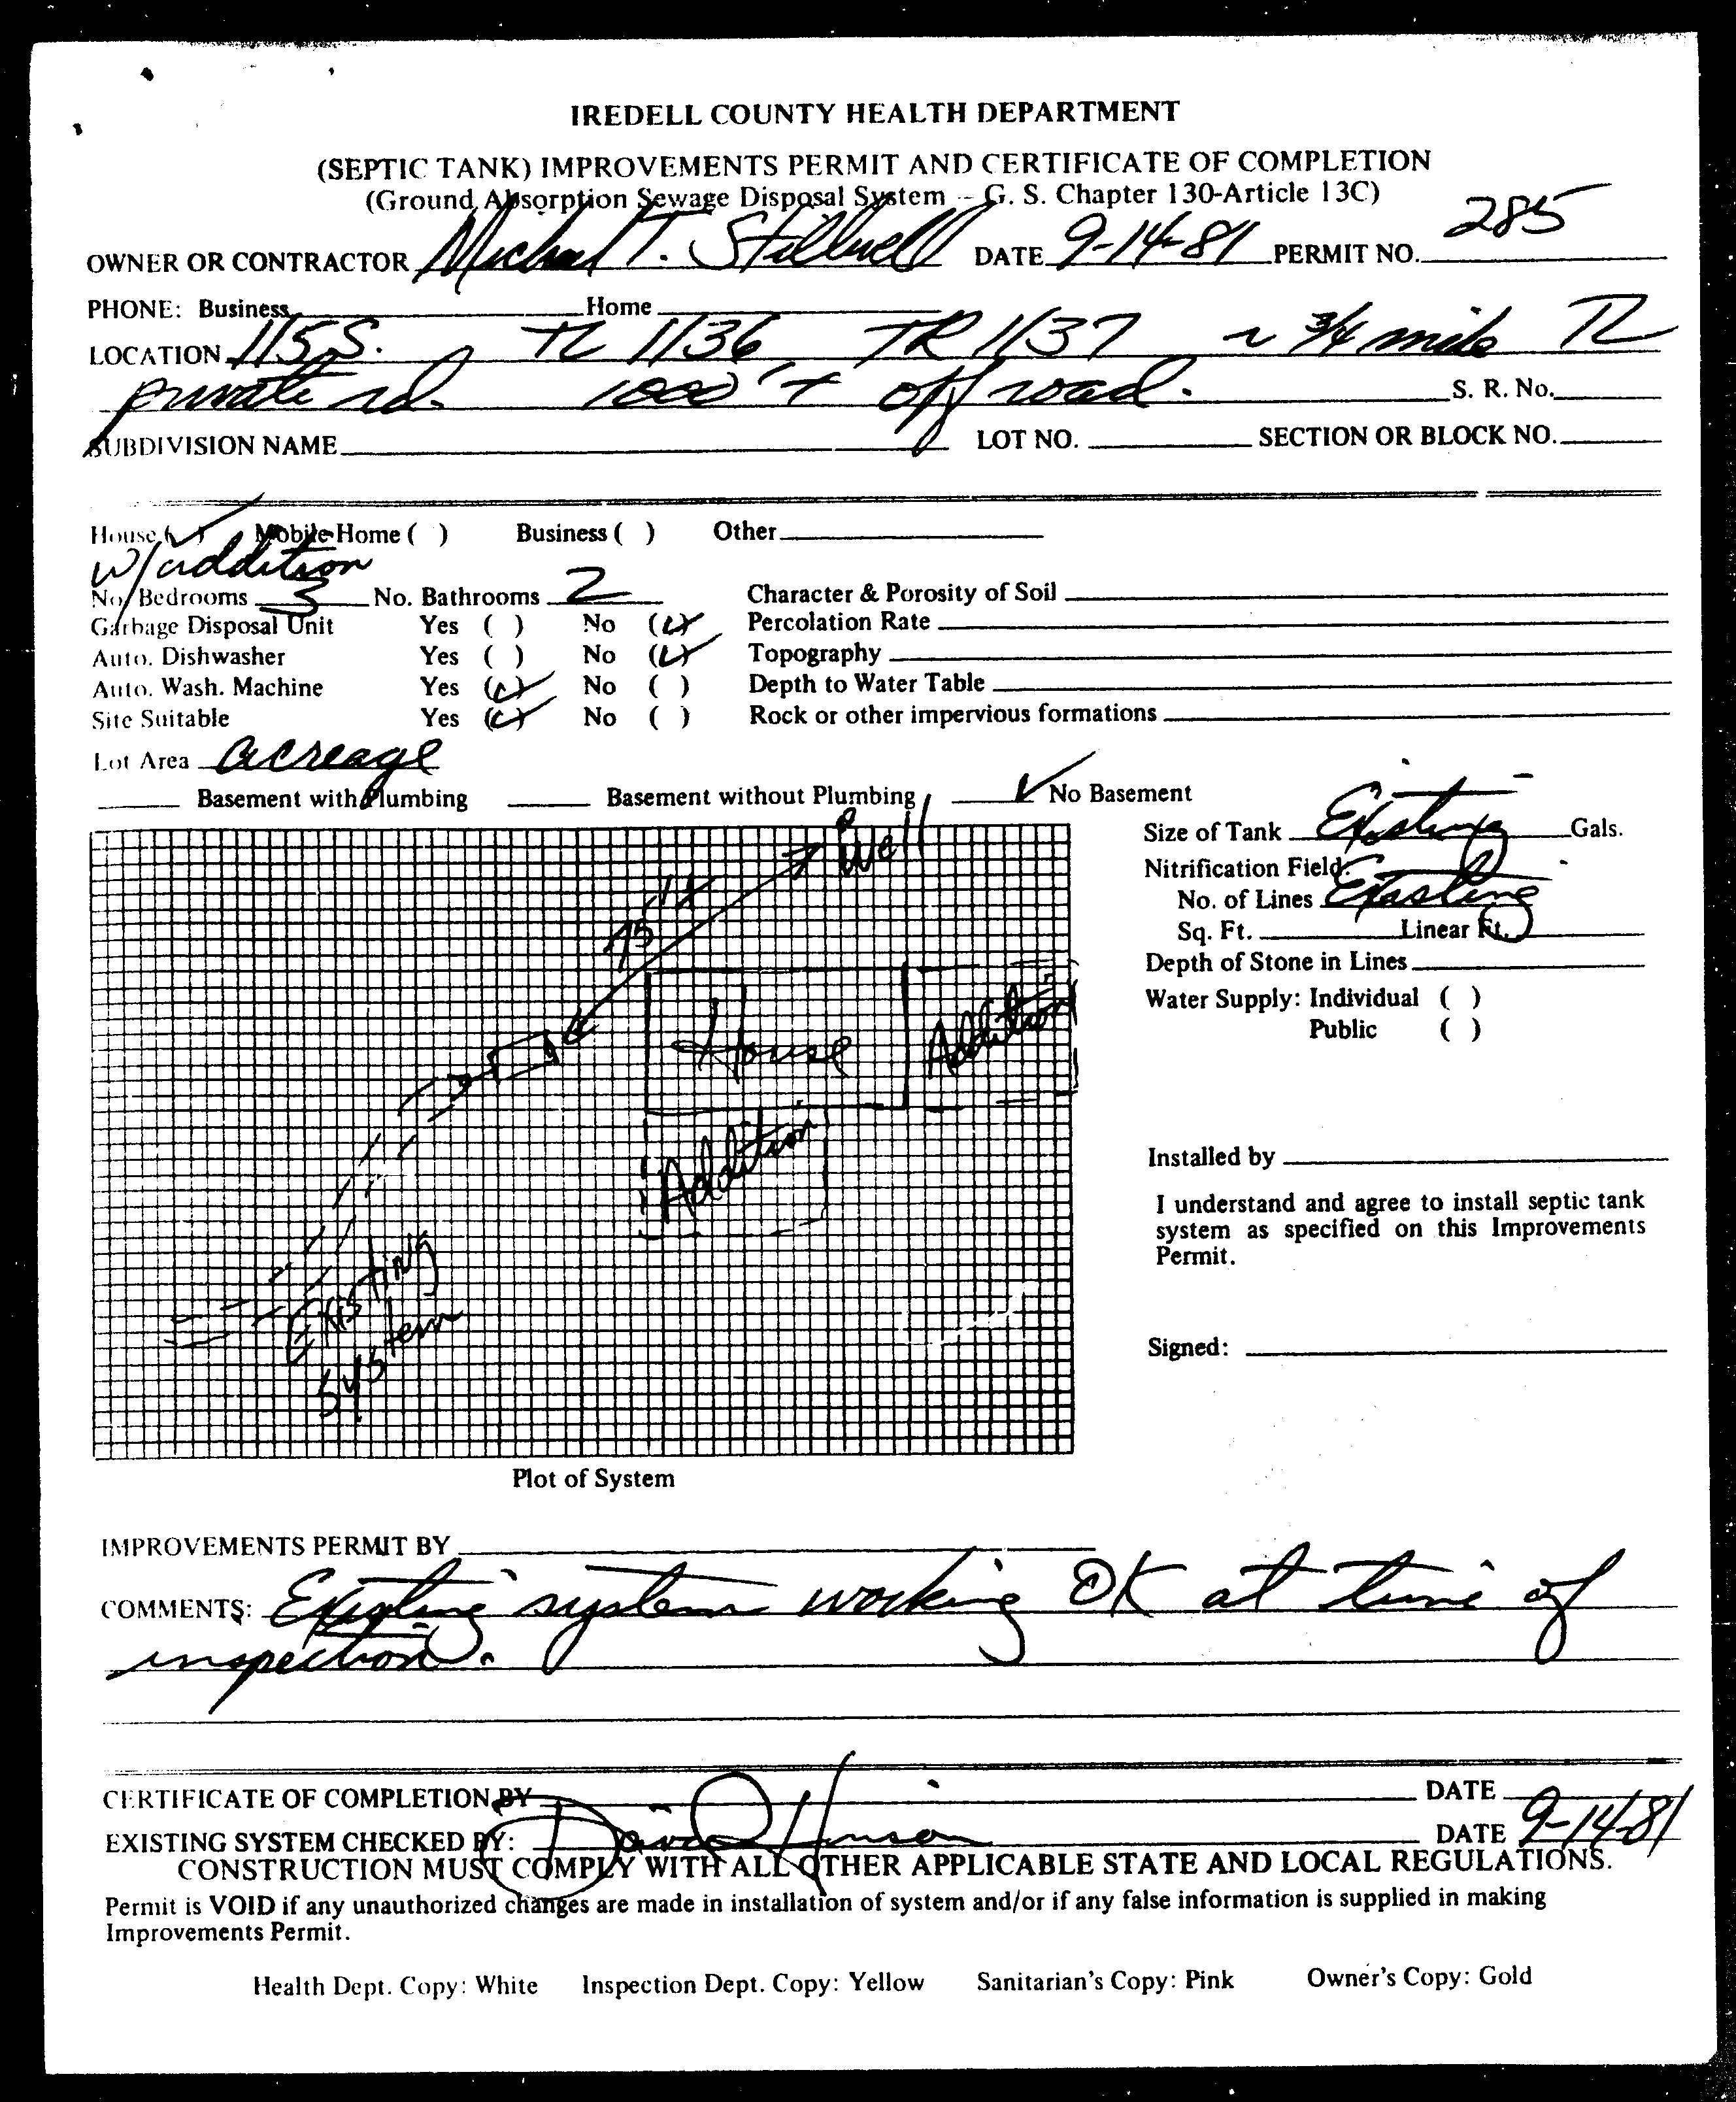 IREDELL COUNTY HEALTH DEPARTMENT
(SEPTIC TANK) IMPROVEMENTS PERMIT AND CERTIFICATE OF COMPLETION
(Ground Absorption Sewage Disposal System -- G. S. Chapter 130-Article 13C)
OWNER OR CONTRACTOR Michael T. Stillwell DATE 9-14-81 PERMIT NO. 285
PHONE: Business Home
LOCATION 115 S. TL 1136 TR 1137 ~ 3/4 mile TL
private rd. 1000'± off road. S. R. No.
SUBDIVISION NAME LOT NO. SECTION OR BLOCK NO.
House (✓) Mobile Home ( ) Business ( ) Other
w/addition
No. Bedrooms 3 No. Bathrooms 2 Character & Porosity of Soil
Garbage Disposal Unit Yes ( ) No (✓) Percolation Rate
Auto. Dishwasher Yes ( ) No (✓) Topography
Auto. Wash. Machine Yes (✓) No ( ) Depth to Water Table
Site Suitable Yes (✓) No ( ) Rock or other impervious formations
Lot Area acreage
Basement with Plumbing Basement without Plumbing ✓ No Basement
Size of Tank Existing Gals.
Nitrification Field:
No. of Lines Existing
Sq. Ft. Linear Ft.
Depth of Stone in Lines
Water Supply: Individual ( )
Public ( )
Well
75'±
House
Addition
Addition
Existing
system
Installed by
I understand and agree to install septic tank
system as specified on this Improvements
Permit.
Signed:
Plot of System
IMPROVEMENTS PERMIT BY
COMMENTS: Existing system working OK at time of
inspection.
CERTIFICATE OF COMPLETION BY DATE
EXISTING SYSTEM CHECKED BY: David Hinson DATE 9-14-81
CONSTRUCTION MUST COMPLY WITH ALL OTHER APPLICABLE STATE AND LOCAL REGULATIONS.
Permit is VOID if any unauthorized changes are made in installation of system and/or if any false information is supplied in making
Improvements Permit.
Health Dept. Copy: White Inspection Dept. Copy: Yellow Sanitarian's Copy: Pink Owner's Copy: Gold